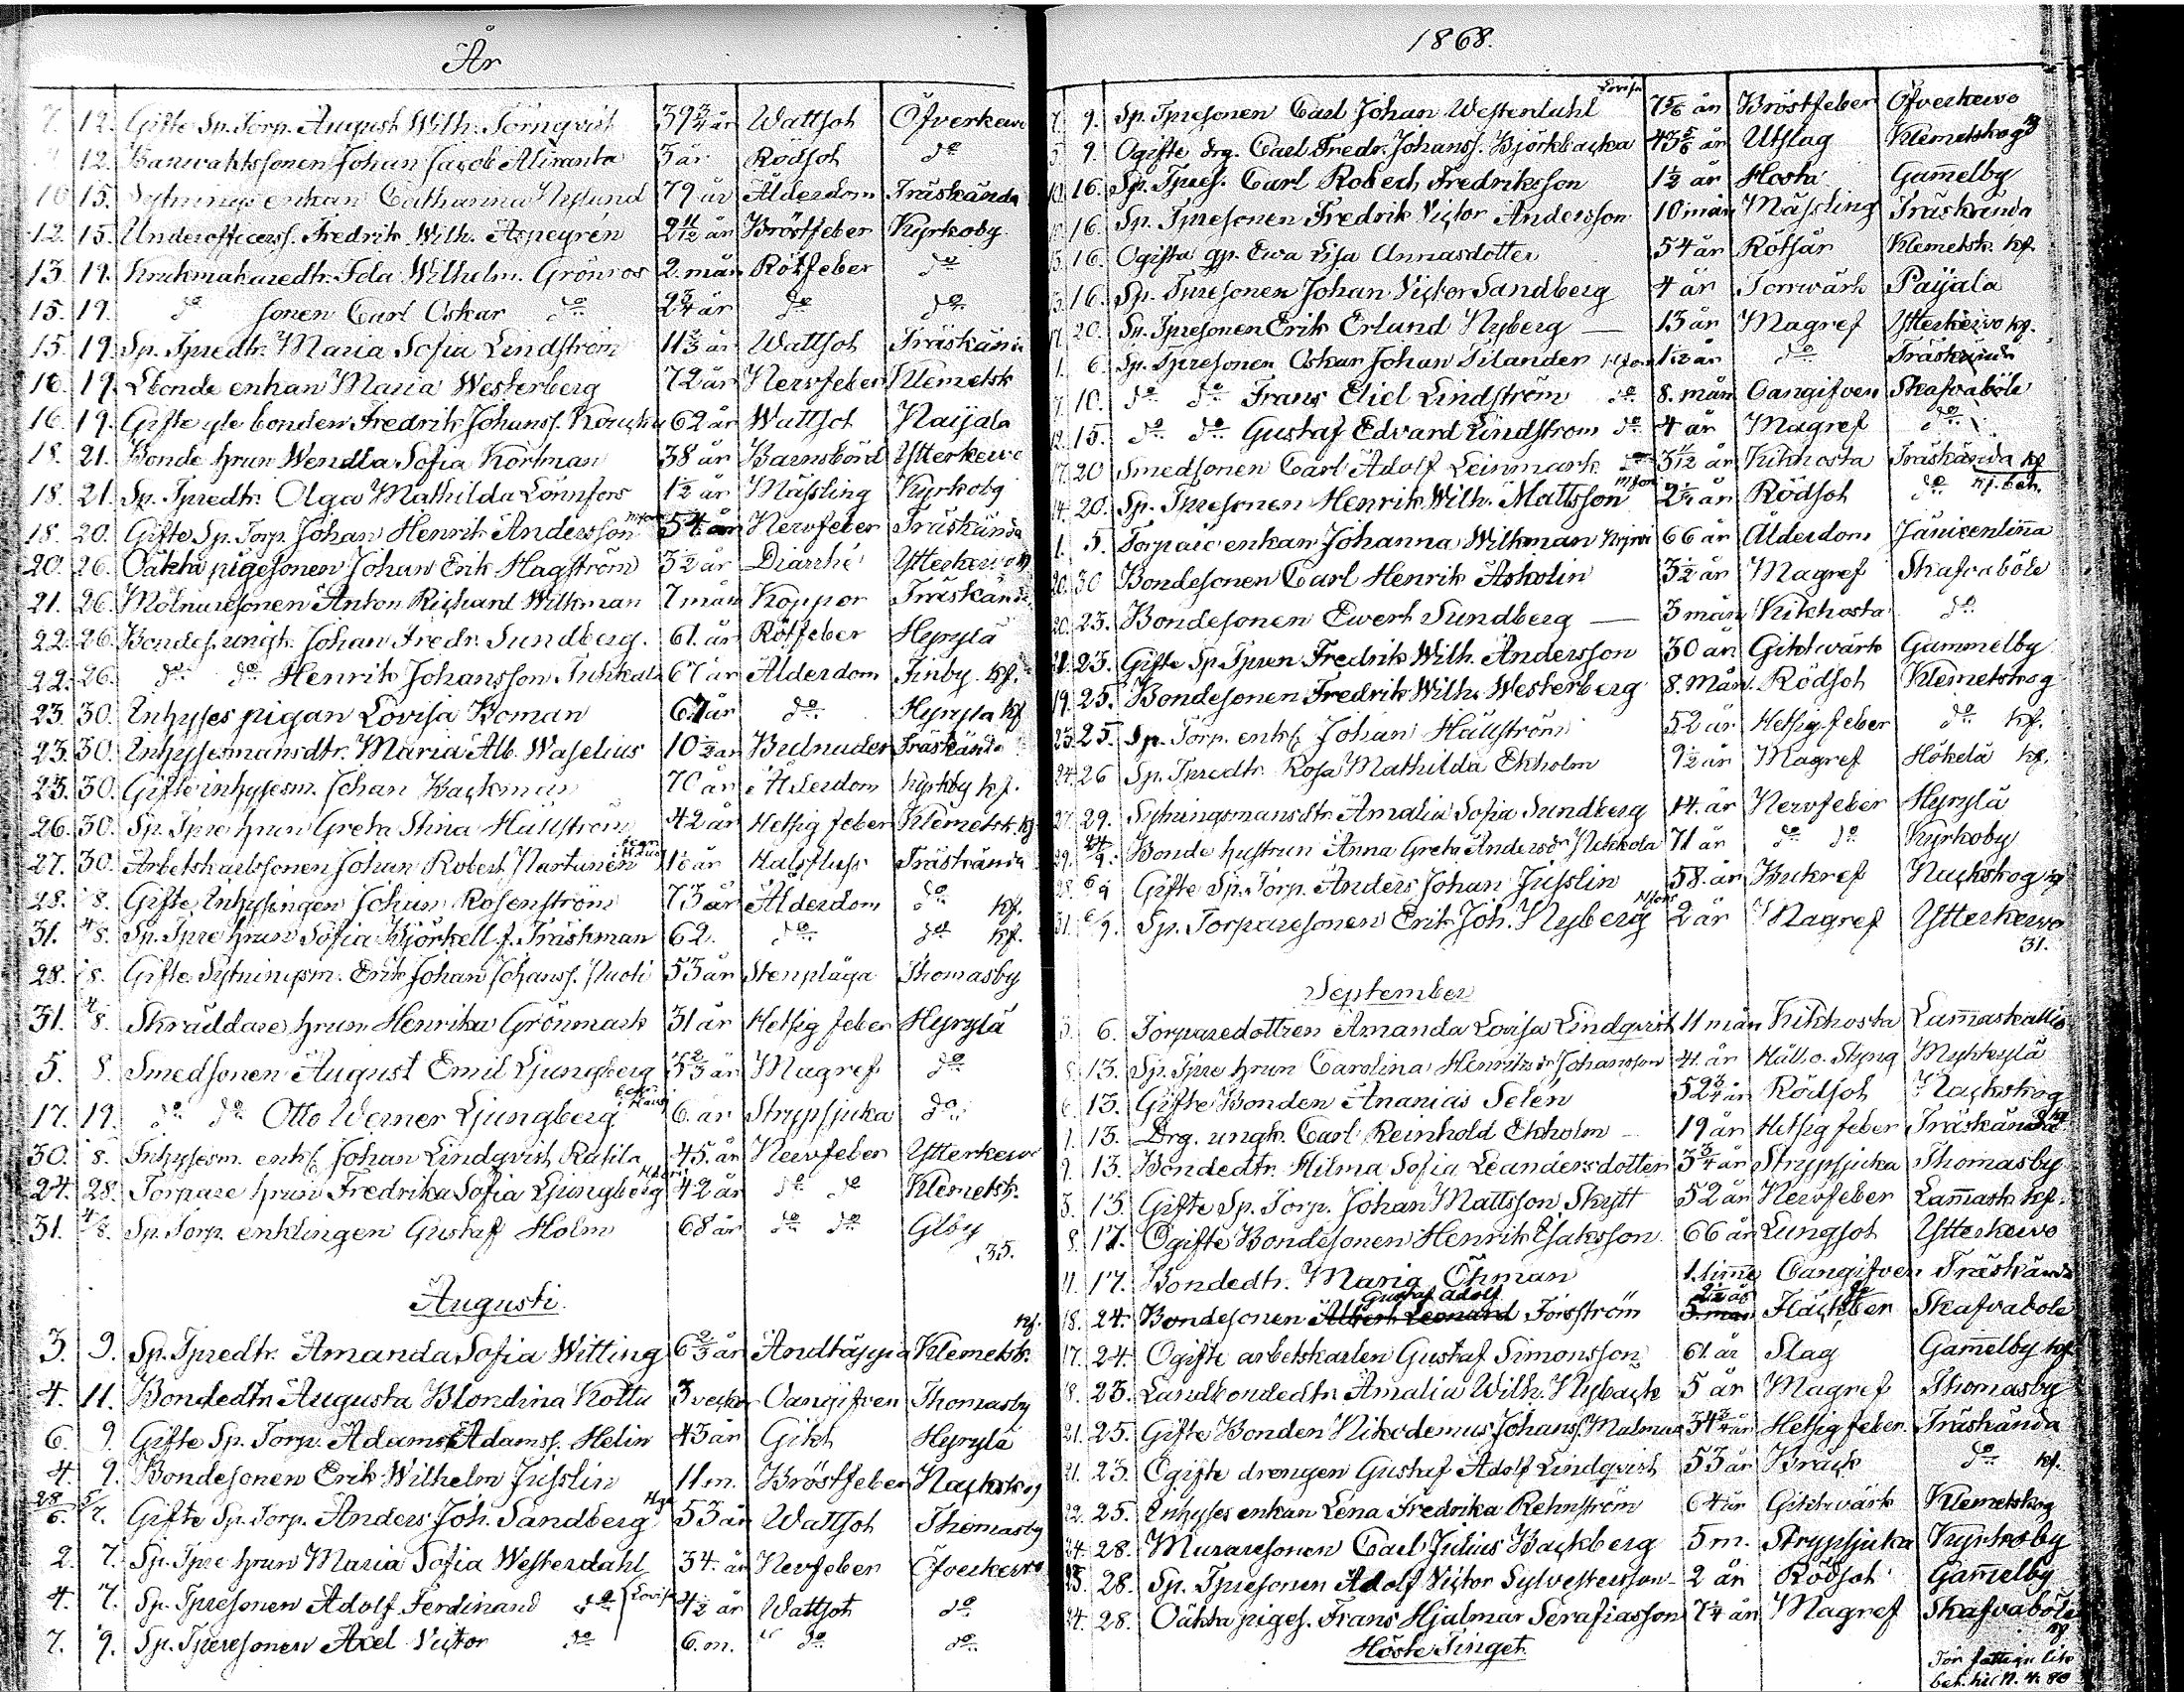 År
7. 12. Gifte Sp. Torp. August Wilh. Törnqvist 39 3/4 år Wattsot Öfverkervo
12. Banwaktssonen Johan Jacob Aliranta 3 år Rödsot do
10 15. Sytnings enkan Catharina Nylund 79 år Ålderdom Träskända
12. 15. Underofficerss. Fredrik Wilh. Aspegrén 2 11/12 år Bröstfeber Kyrkoby
13. 19. Krukmakaredtr. Ida Wilhelm. Grönros 2. mån Rötfeber do
15. 19. do sonen Carl Oskar do 2 3/4 år do do
15. 19. Sp. Tpredtr. Maria Sofia Lindström 11 2/3 år Wattsot Träskända
16. 19. Lbonde enkan Maria Westerberg 72 år Nervfeber Klemetsk
16. 19. Gifte bonden Fredrik Johanss. 62 år Wattsot Naijala
18. 21. Bonde hrun Wendla Sofia Körtman 38 år Barnsbörd Ytterkervo
18. 21. Sp. Tpredtr. Olga Mathilda Lönnfors 1 1/2 år Mässling Kyrkoby
18. 20. Gifte Sp. Torp. Johan Henrik Andersson 54 år Nervfeber Träskända
20. 26. Oäkta pigesonen Johan Erik Hagström 3 1/2 år Diarrhé Ytterkervo
21. 26. Mölnaresonen Anton Richard Wilkman 7 mån Koppor Träskända
22. 26. Bondes. ungk. Johan Fredr. Sundberg. 61. år Rötfeber Hyrylä
22. 26. do do Henrik Johansson Juhkala 67 år Ålderdom Finby kf.
23. 30. Inhyses pigan Lovisa Boman 67 år do Hyryla kf
23. 30. Inhysesmansdtr. Maria Alb. Waselius 10 1/2 år Träskända
23. 30. Gifte inhysesm. Johan Backman 70 år Ålderdom kyrkby kf.
26. 30. Sp. Tpre hrun Greta Stina Hällström 42 år Hetsig feber Klemetsk. kf
27. 30. Arbetskarlssonen Johan Robert Nartunén år Halsfluss Träskända
28. 8. Gifte Inhysingen Johan Rosenström 73 år Ålderdom do kf.
31. 4/8. Sp. Tpre hrun Sofia Björkell f. Träskman 62. do do kf.
28. 8. Gifte Sytningsm. Erik Johan Johanss. Nuoti 53 år Stenplåga Thomasby
31. 4/8. Skräddare hrun Henrika Grönmark 31 år Hetsig feber Hyrylä
5. 8. Smedsonen August Emil Ljungberg 5 2/3 år Magref do
17. 19. do do Otto Werner Ljungberg 6. år Strypsjuka do
30. 8. Inhysesm. enkl. Johan Lindqvist Rasila 45. år Nervfeber Ytterkervo
24. 28. Torpare hrun Fredrika Sofia Ljungberg 42 år do do Klemetsk.
31. 4/8. Sp. Torp. enklingen Gustaf Holm 68 år do do Glsby
35.
Augusti.
3. 9. Sp. Tpredtr. Amanda Sofia Witting 6 2/3 år Andtäppa Klemetsk. kf.
4. 11. Bondedtr. Augusta Blondina Kottu 3 veckor Oangifven Thomasby
6. 9. Gifte Sp. Torp. Adam Adamss. Helin 43 år Gikt Hyrylä
4. 9. Bondesonen Erik Wilhelm Jusslin 11 m. Bröstfeber Nackskog
28/6. 5/7. Gifte Sp. Torp. Anders Joh. Sandberg 53 år Wattsot Thomasby
2. 7. Sp. Tpre hrun Maria Sofia Westerdahl 34. år Nervfeber Öfverkervo
4. 7. Sp. Tpresonen Adolf Ferdinand do Lovisa 4 1/2 år Wattsot do
7. 9. Sp. Tpresonen Axel Victor do 6. m. do do
1868.
7. 9. Sp. Tpresonen Carl Johan Westerdahl Lovisa 7 5/6 år Bröstfeber Öfverkervo
5. 9. Ogifte drg. Carl Fredr. Johanss. Björkbacka 43 5/6 år Utslag Klemetskog
10. 16. Sp. Tpres. Carl Robert Fredriksson 1 1/2 år Hosta Gam̄elby
16. Sp. Tpresonen Fredrik Victor Andersson 10 mån Mässling Träskända
15. 16. Ogifta qp. Ewa Lisa Annasdotter 54 år Rötsår Klemetsk. kf.
13. 16. Sp. Tpresonen Johan Victor Sandberg 4 år Torrwärk Paijala
17. 20. Sp. Tpresonen Erik Erlund Nyberg — 13 år Magref Ytterkervo kf.
1. 6. Sp. Tpresonen Oskar Johan Tilander 1 1/12 år do Träskända
7. 10. do do Frans Eliel Lindström do 8. mån Oangifven Skafvaböle
12. 15. do do Gustaf Edvard Lindström do 4 år Magref do
17. 20 Smedsonen Carl Adolf Leinmark do 3 1/12 år Kikhosta Träskända kf
14. 20. Sp. Tpresonen Henrik Wilh. Mattsson 2 1/4 år Rödsot do kf. bet.
1. 5. Torpare enkan Johanna Wilkman 66 år Ålderdom Jänicenlin̄a
20. 30 Bondesonen Carl Henrik Askolin 3 1/2 år Magref Skafvaböle
20. 23. Bondesonen Ewert Sundberg — 3 mån Kikhosta do
21. 23. Gifte Sp. Tpren Fredrik Wilh. Andersson 30 år Giktwärk Gammelby
19. 25. Bondesonen Fredrik Wilh. Westerberg 8. Mån. Rödsot Klemetskog
23. 25. Sp. Torp. enkl. Johan Hällström 52 år Hetsig. feber do kf.
24. 26 Sp. Tpredtr. Rosa Mathilda Ekholm 9 1/2 år Magref Hökelä kf.
27. 29. Sytningsmansdtr. Amalia Sofia Sundberg 14. år Nervfeber Hyrylä
29. Bonde hustrun Anna Greta Andersdr Nikkola 71 år do do Kyrkoby
28. 6/9 Gifte Sp. Torp. Anders Johan Jusslin 58. år Bukref Nackskog kf
31. 6/9. Sp. Torparesonen Erik Joh. Nyberg 2 år Magref Ytterkervo
31.
September
3. 6. Torparedottren Amanda Lovisa Lindqvist 11 mån Kikhosta Lam̄askallio
8. 13. Sp. Tpre hrun Carolina Henriksdr Johansson 41. år Håll o. Styng Mykkylä
6. 13. Gifte Bonden Ananias Selén 52 3/4 år Rödsot Nackskog
1. 13. Drg. ungk. Carl Reinhold Ekholm — 19 år Hetsig feber Träskända kf
9. 13. Bondedtr. Hilma Sofia Leandersdotter 3 3/4 år Strypsjuka Thomasby
3. 13. Gifte Sp. Torp. Johan Mattsson Skytt 52 år Nervfeber Lam̄ask. kf.
8. 17. Ogifte Bondesonen Henrik Esaksson 66 år Lungsot Ytterkervo
11. 17. Bondedtr. Maria Öhman 1. tim̄e Oangifven Träskända
18. 24. Bondesonen Albert Leonard Gustaf Adolf Forsström 3. mån 2 1/2 år Fläckfeber Skafvaböle
17. 24. Ogifte arbetskarlen Gustaf Simonsson 61. år Slag Gam̄elby kf
18. 23. Landbondedtr. Amalia Wilh. Nyback 5 år Magref Thomasby
21. 25. Gifte Bonden Nikodemus Johanss. Malmus 34 3/4 år Hetsig feber Träskända
21. 23. Ogifte drengen Gustaf Adolf Lindqvist 53 år Bråck do kf.
22. 25. Inhyses enkan Lena Fredrika Rehnström 64 år Giktwärk Klemetskog
24. 28. Muraresonen Carl Julius Backberg 5 m. Strypsjuka Kyrkoby
25. 28. Sp. Tpresonen Adolf Victor Sylvestersson 2 år Rödsot Gam̄elby
24. 28. Oäkta piges. Frans Hjalmar Serafiasson 7 1/4 år Magref Skafvaböle kf
Höste Tinget
För fattige lik
bet. hit N. 4: 80